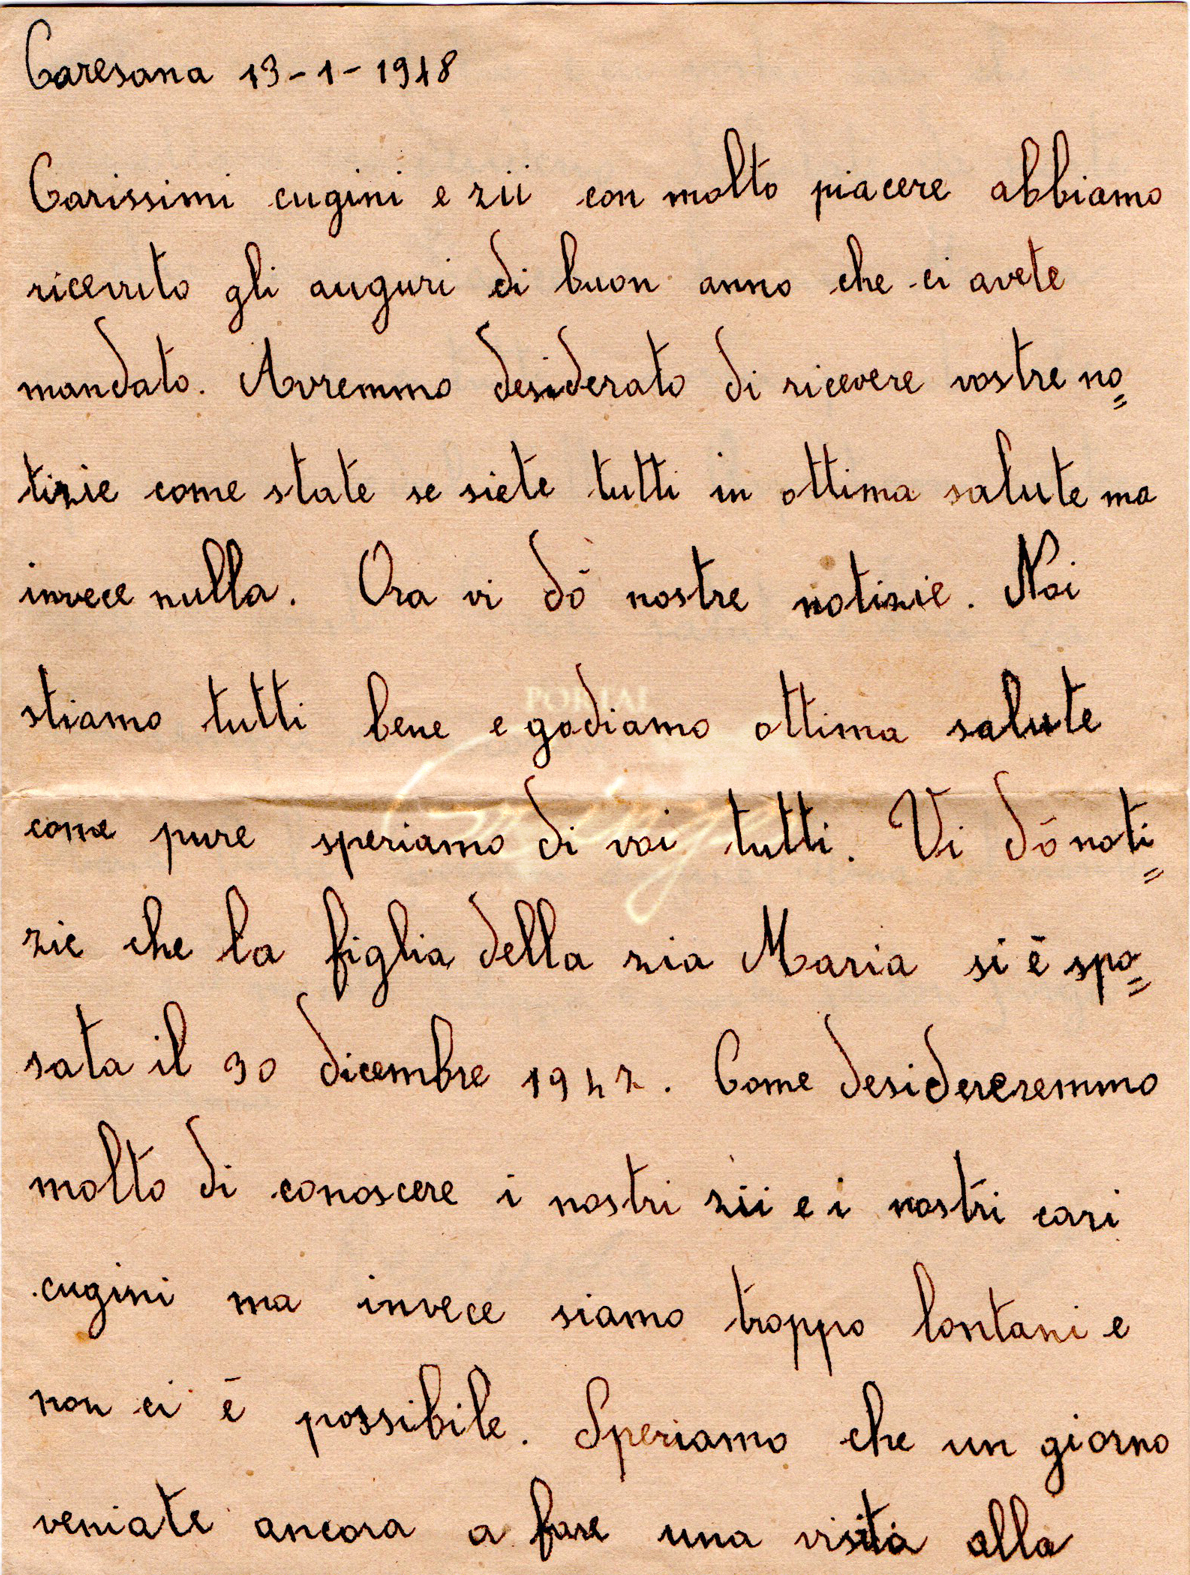 Caresana 13-1-1948
Carissimi cugini e zii con molto piacere abbiamo
ricevuto gli auguri di buon anno che ci avete
mandato. Avremmo desiderato di ricevere vostre no=
tizie come state se siete tutti in ottima salute ma
invece nulla. Ora vi dó nostre notizie. Noi
stiamo tutti bene e godiamo ottima salute
PORTAL
come pure speriamo di voi tutti. Vi dó noti=
zie che la figlia della zia Maria si é spo=
sata il 30 dicembre 1947. Come desidereremmo
molto di conoscere i nostri zii e i nostri cari
cugini ma invece siamo troppo lontani e
non ci é possibile. Speriamo che un giorno
veniate ancora a fare una visita alla